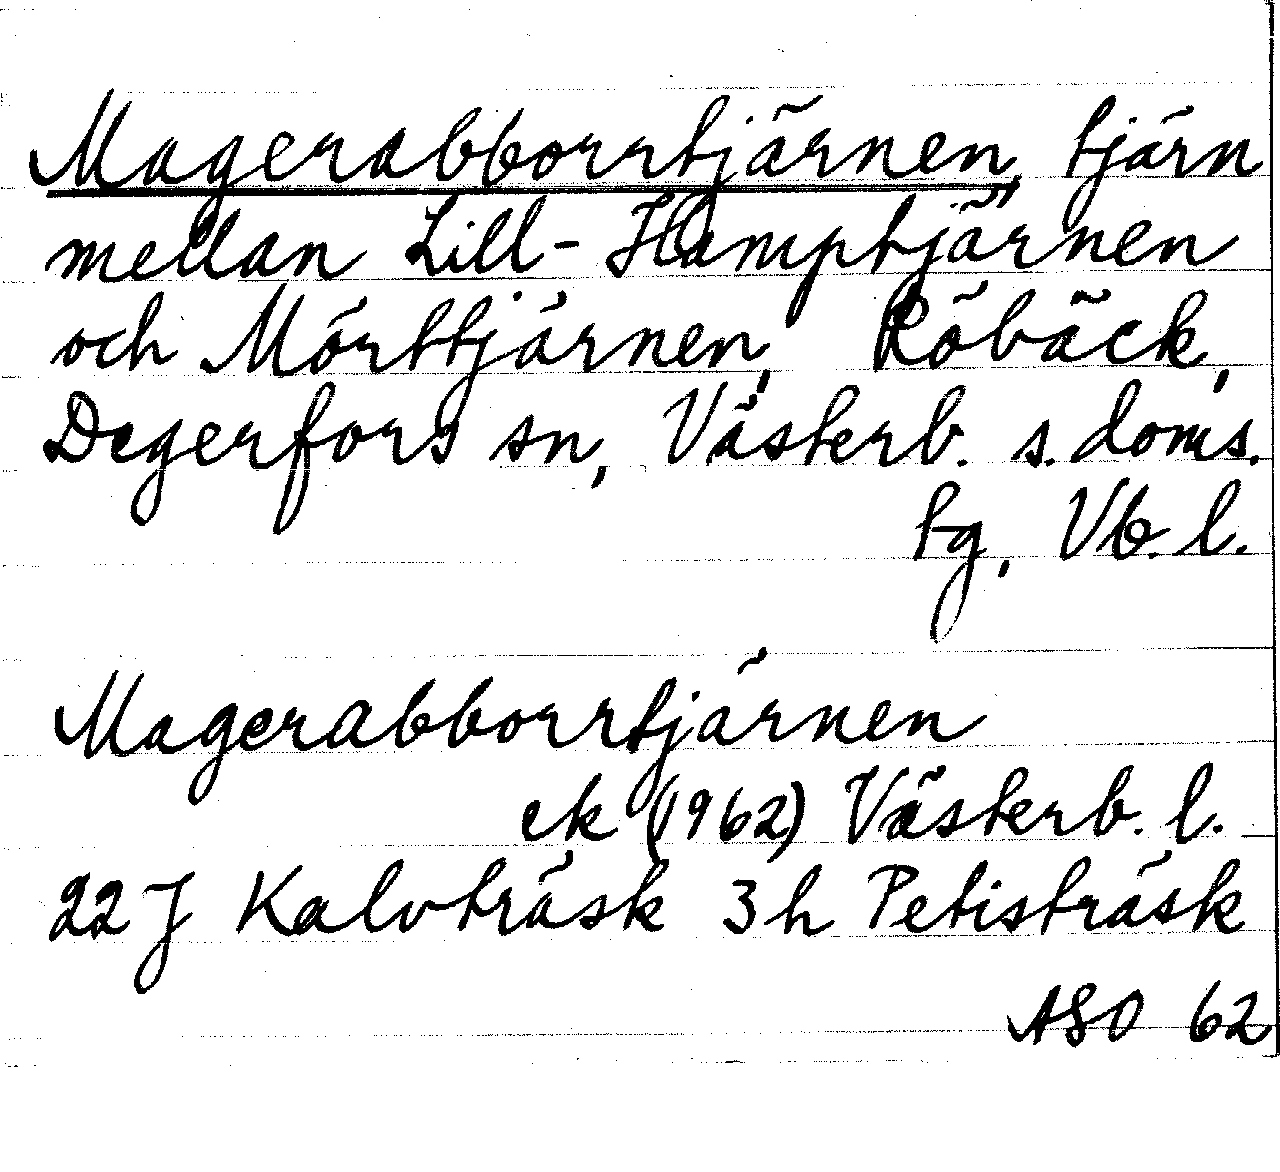 Magerabborrtjärnen, tjärn
mellan Lill-Hamptjärnen
och Mörttjärnen, Röbäck,
Degerfors sn, Västerb. s. doms.
tg, Vb. l.
Magerabborrtjärnen
ek (1962) Västerb. l.
22 J Kalvträsk 3h Petisträsk
ASO 62